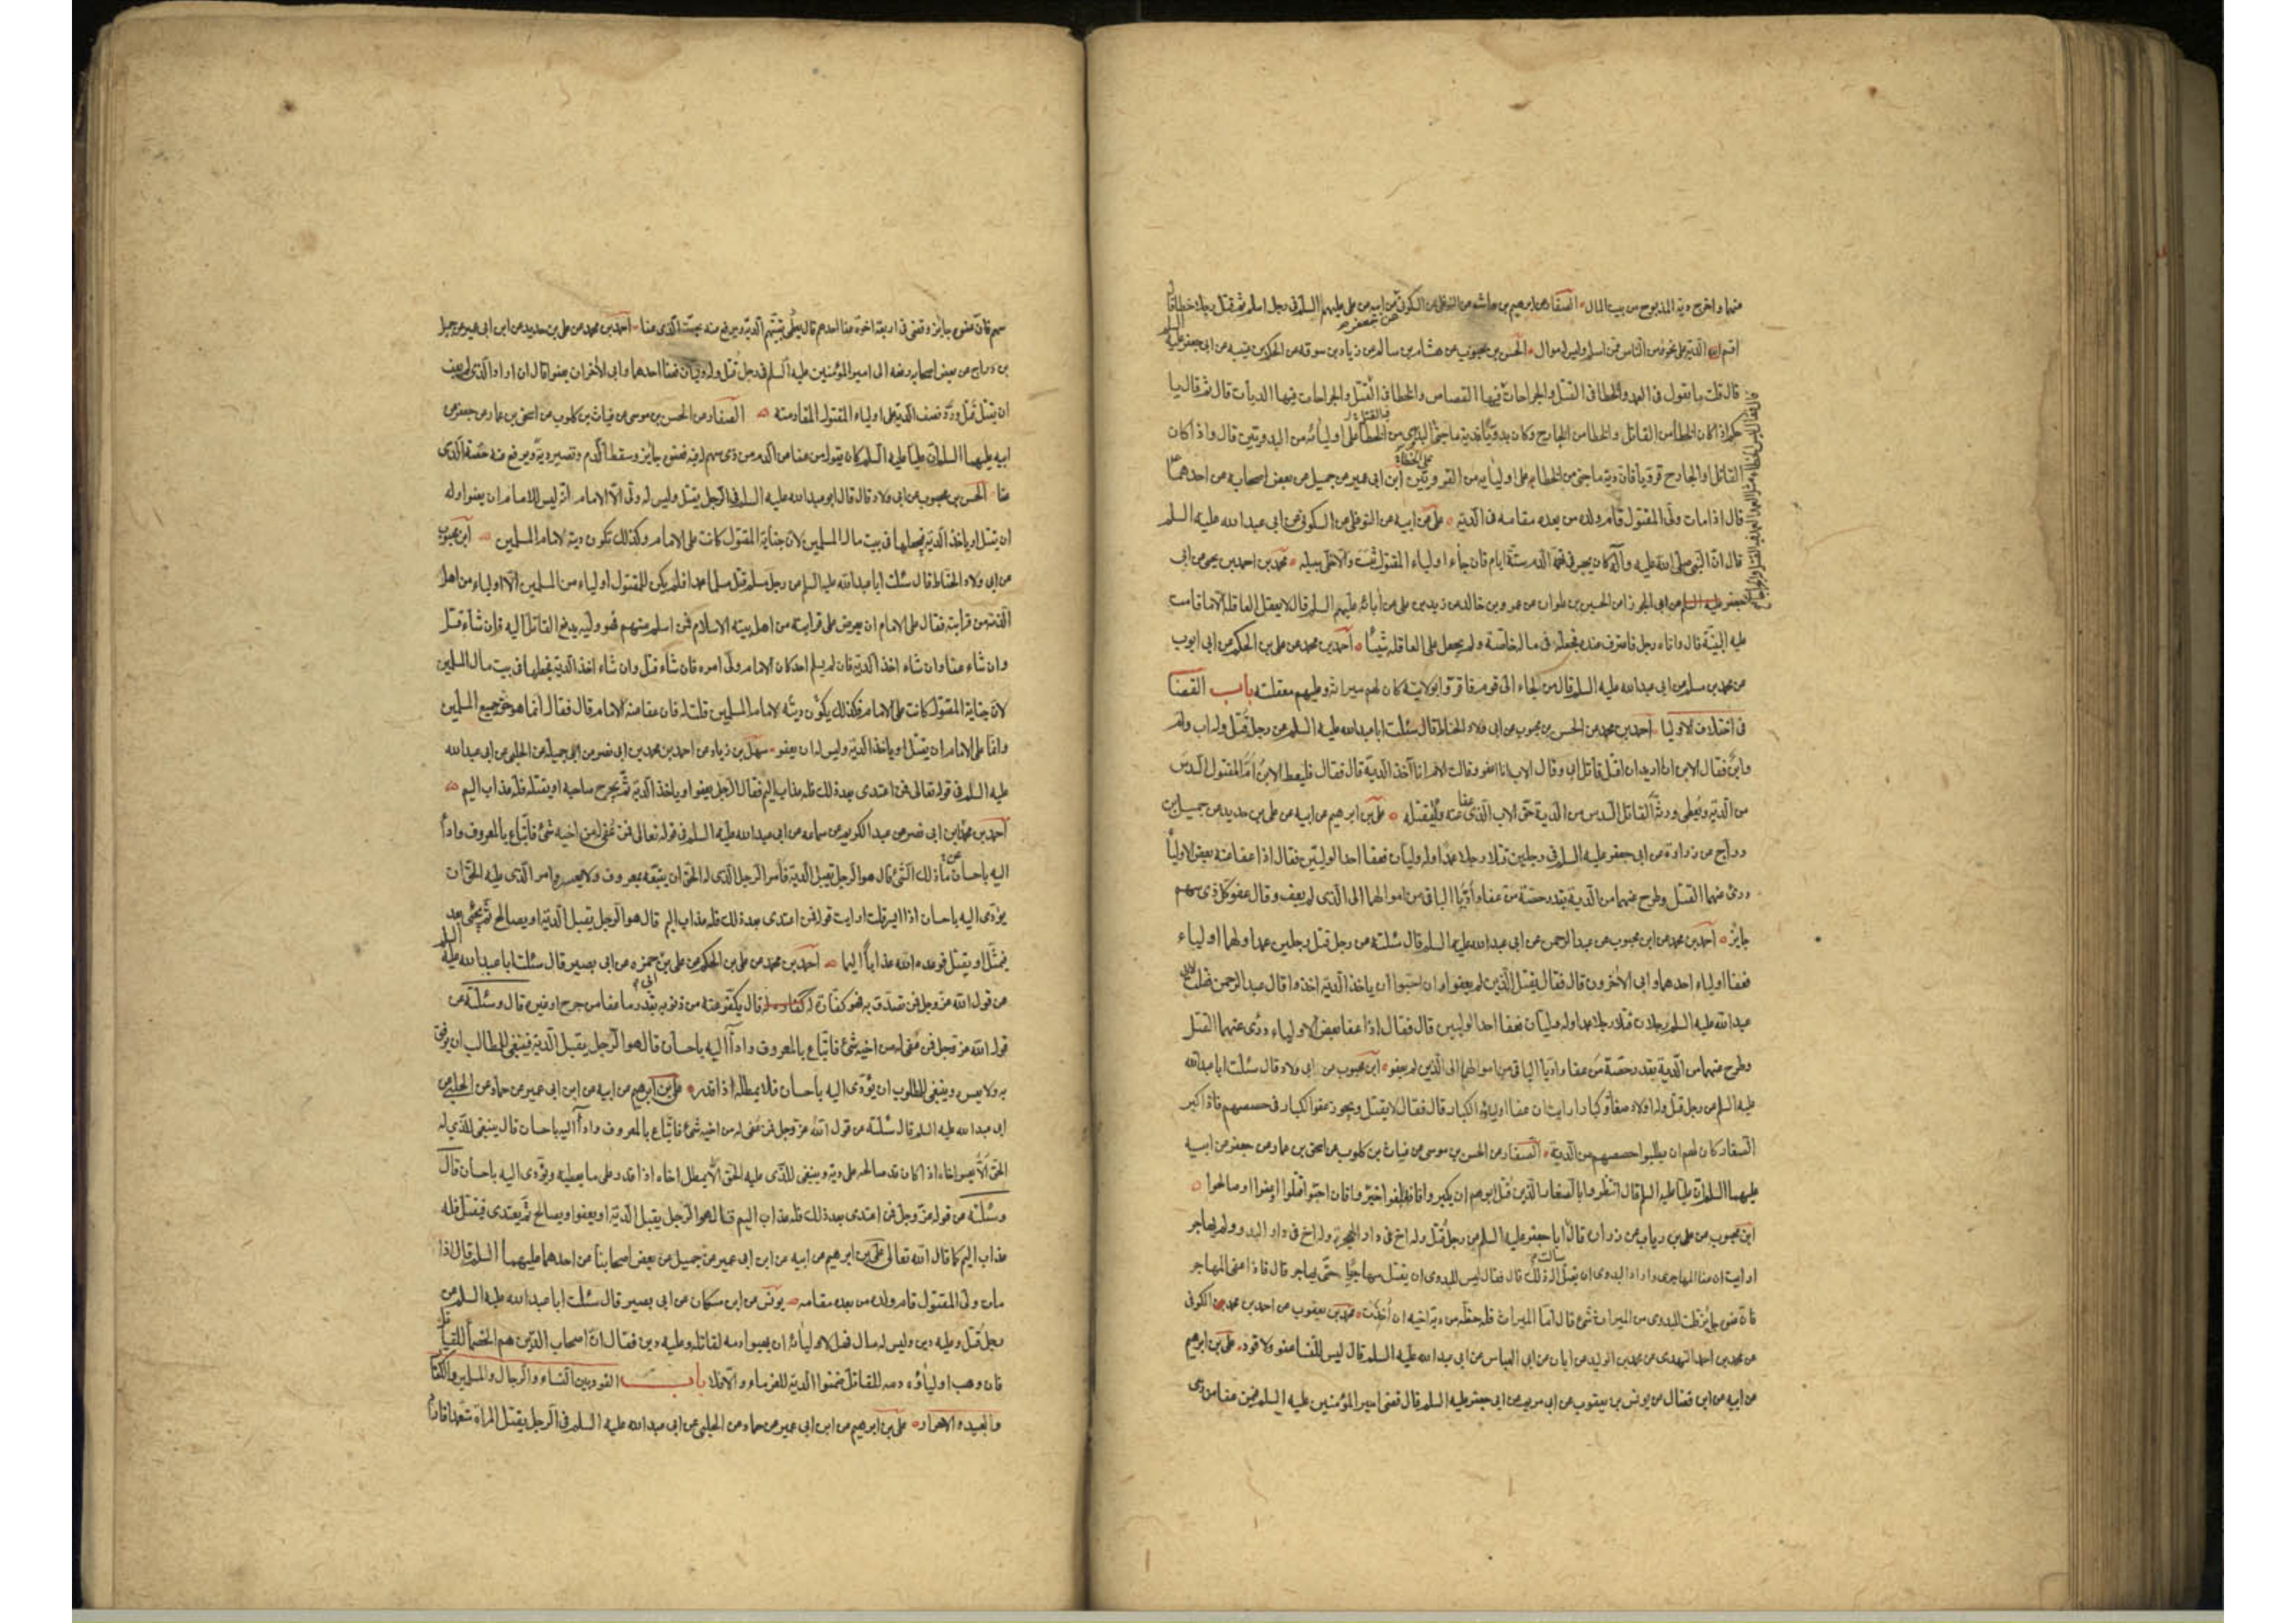 منهما واخرج دية المذبوح من بيت المال الصفار عن ابرهيم بن هاشم عن النوفلى عن السكونى عن جعفر عن ابيه عن على عليهم السلم فى رجل اسلم ثم قتل رجلا خطا قال
اقسم الدية على نحوه من الناس ممن اسلم وليس له موال الحسن بن محبوب عن هشام بن سالم عن زياد بن سوقه عن الحكم بن عتيبه عن ابى جعفر عليه السلم
قال قلت ما يقول فى العمد والخطا فى القتل والجراحات
فيها القصاص والخطا فى القتل والجراحات فيها الديات قال ثم قال يا
حكم اذا كان الخطا من القاتل والخطا من الجارح وكان بدويا فدية ما جنى البدوى من الخطا على اوليائه من البدويين قال واذا كان
القاتل او الجارح قرويا فان دية ما جنى من الخطا على اوليائه من القرويين ابن ابى عمير عن جميل عن بعض اصحابه عن احدهما
قال اذا مات ولى المقتول قام ولده من بعده مقامه فى الدية على عن ابيه عن النوفلى عن السكونى عن ابى عبد الله عليه السلم
قال ان النبى صلى الله عليه وآله كان يحبس فى تهمة الدم ستة ايام فان جاء اولياء المقتول بثبت والا خلى سبيله محمد بن احمد بن يحيى عن ابى
جعفر عن ابى الجوزا عن الحسين بن علوان عن عمرو بن خالد عن زيد بن على عن آبائه عليهم السلم قال لا يعقل العاقلة الا ما قامت
عليه البينة قال واتاه رجل فاعترف عنده فجعله فى ماله خاصة ولم يجعل على العاقلة شيئا احمد بن محمد عن على بن الحكم عن ابى ايوب
عن محمد بن مسلم عن ابى عبد الله عليه السلم قال من لجاء الى قوم فاقروا بولايته كان لهم ميراثه وعليهم معقلته باب القضا
فى اختلاف الاوليا احمد بن محمد عن الحسن بن محبوب عن ابى ولاد الحناط قال سئلت ابا عبد الله عليه السلم عن رجل قتل وله اب وام
وابن فقال الابن انا اريد ان اقتل قاتل ابى وقال الاب انا اعفو وقالت الام انا آخذ الدية قال فقال فليعط الابن ام المقتول السدس
من الدية ويعطى ورثة القاتل السدس من الدية حق الاب الذى عفا عنه وليقتله على بن ابرهيم عن ابيه عن على بن حديد عن جميل بن
دراج عن زرارة عن ابى جعفر عليه السلم فى رجلين قتلا رجلا عمدا وله وليان فعفا احد الوليين فقال اذا عفا عنه بعض الاوليا
درئ عنهما القتل وطرح عنهما من الدية بقدر حصة من عفا واديا الباقى من اموالهما الى الذى لم يعف وقال عفو كل ذى سهم
جايز احمد بن محمد عن ابن محبوب عن عبد الرحمن عن ابى عبد الله عليه السلم قال سئلته عن رجل قتل رجلين عمدا ولهما اولياء
فعفا اولياء احدهما وابى الآخرون قال فقال يقتل الذين لم يعفوا وان احبوا ان ياخذ الدية اخذوا قال عبد الرحمن فقلت لابى
عبد الله عليه السلم رجلان قتلا رجلا عمدا وله وليان فعفا احد الوليين قال فقال اذا عفا بعض الاولياء درئ عنهما القتل
وطرح عنهما من الدية بقدر حصة من عفا واديا الباقى من اموالهما الى الذين لم يعفو ابن محبوب عن ابى ولاد قال سئلت ابا عبد الله
عليه السلم عن رجل قتل وله اولاد صغار وكبار ارايت ان عفا اولياؤه الكبار قال فقال لا يقتل ويجوز عفو الكبار فى حصصهم فاذا كبر
الصغار كان لهم ان يطلبوا حصصهم من الدية الصفار عن الحسن بن موسى عن غياث بن كلوب عن اسحق بن عمار عن جعفر عن ابيه
عليهما السلم ان عليا عليه السلم قال انتظروا بالصغار الذين قتل ابوهم ان يكبروا فاذا بلغوا خيروا فان احبوا قتلوا او عفوا او صالحوا
ابن محبوب عن على بن رياب عن زرارة قال سالت ابا جعفر عليه السلم عن رجل قتل وله اخ فى دار الهجرة وله اخ فى دار البدو ولم يهاجر
ارايت ان عفا المهاجرى واراد البدوى ان يقتل اله ذلك قال فقال ليس للبدوى ان يقتل مهاجريا حتى يهاجر قال فاذا عفى المهاجر
فان عفوه جايز قلت للبدوى من الميراث شئ قال اما الميراث فله حظه من دية اخيه ان اخذت محمد بن يعقوب عن احمد بن محمد الكوفى
عن محمد بن احمد النهدى عن محمد بن الوليد عن ابان عن ابى العباس عن ابى عبد الله عليه السلم قال ليس للنسا عفو ولا قود على بن ابرهيم
عن ابيه عن ابن فضال عن يونس بن يعقوب عن ابى مريم عن ابى جعفر عليه السلم قال قضى امير المؤمنين عليه السلم فيمن عفا من ذى
سهم فان عفوه جايز وقضى فى اربعة اخوة عفا احدهم قال يعطى بقيتهم الدية ويرفع عنه بحصة الذى عفا احمد بن محمد عن على بن حديد عن ابن ابى عمير عن جميل
بن دراج عن بعض اصحابه رفعه الى امير المؤمنين عليه السلم فى رجل قتل وله وليان فعفا احدهما وابى الآخر ان يعفو قال ان اراد الذى لم يعف
ان يقتل قتل ورد نصف الدية على اولياء المقتول المقاد منه الصفار عن الحسن بن موسى عن غياث بن كلوب عن اسحق بن عمار عن جعفر عن
ابيه عليهما السلم ان عليا عليه السلم كان يقول من عفا من الدم من ذى سهم له فيه فعفوه جايز وسقط الدم وتصير دية ويرفع عنه حصة الذى
عفا الحسن بن محبوب عن ابى ولاد قال قال ابو عبد الله عليه السلم فى الرجل يقتل وليس له ولى الا الامام انه ليس للامام ان يعفو وله
ان يقتل او ياخذ الدية فيجعلها فى بيت مال المسلمين لان جناية المقتول كانت على الامام وكذلك تكون دية لامام المسلمين ابن محبوب
عن ابى ولاد الحناط قال سئلت ابا عبد الله عليه السلم عن رجل مسلم قتل مسلما عمدا فلم يكن للمقتول اولياء من المسلمين الا اولياء من اهل
الذمة من قرابته فقال على الامام ان يعرض على قرابته من اهل بيته الاسلام فمن اسلم منهم فهو وليه يدفع القاتل اليه فان شاء قتل
وان شاء عفا وان شاء اخذ الدية فان لم يسلم احد كان الامام ولى امره فان شاء قتل وان شاء اخذ الدية يجعلها فى بيت مال المسلمين
لان جناية المقتول كانت على الامام فكذلك يكون ديته لامام المسلمين قلت له فان عفا عنه الامام قال فقال انما هو حق جميع المسلمين
وانما على الامام ان يقتل او ياخذ الدية وليس له ان يعفو سهل بن زياد عن احمد بن محمد بن ابى نصر عن ابى جميله عن الحلبى عن ابى عبد الله
عليه السلم فى قوله تعالى فمن اعتدى بعد ذلك فله عذاب اليم فقال الرجل يعفو او ياخذ الدية ثم يجرح صاحبه او يقتله فله عذاب اليم
احمد بن محمد بن ابى نصر عن عبد الكريم عن سماعه عن ابى عبد الله عليه السلم فى قوله تعالى فمن عفى له من اخيه شئ فاتباع بالمعروف واداء
اليه باحسان ما ذلك الشئ قال هو الرجل يقبل الدية فامر الرجل الذى له الحق ان يتبعه بمعروف ولا يعسره وامر الذى عليه الحق ان
يؤدى اليه باحسان اذا ايسر قلت ارايت قوله فمن اعتدى بعد ذلك فله عذاب اليم قال هو الرجل يقبل الدية او يصالح ثم يجئ بعد
فيمثل او يقتل فوعده الله عذابا اليما احمد بن محمد عن على بن الحكم عن على بن ابى حمزه عن ابى بصير قال سئلت ابا عبد الله عليه السلم
عن قول الله عز وجل فمن تصدق به فهو كفارة له قال يكفر عنه من ذنوبه بقدر ما عفا من جرح او غيره قال وسئلته عن
قول الله عز وجل فمن عفى له من اخيه شئ فاتباع بالمعروف واداء اليه باحسان قال هو الرجل يقبل الدية فينبغى للطالب ان يرفق
به ولا يعسره وينبغى للمطلوب ان يؤدى اليه باحسان فلا يمطله اذا قدر على بن ابرهيم عن ابيه عن ابن ابى عمير عن حماد عن الحلبى عن
ابى عبد الله عليه السلم قال سئلته عن قول الله عز وجل فمن عفى له من اخيه شئ فاتباع بالمعروف واداء اليه باحسان قال ينبغى للذى له
الحق الا يعسر اخاه اذا كان قد صالحه على دية وينبغى للذى عليه الحق الا يمطل اخاه اذا قدر على ما يعطيه ويؤدى اليه باحسان قال
وسئلته عن قوله عز وجل فمن اعتدى بعد ذلك فله عذاب اليم قال هو الرجل يقبل الدية او يعفو او يصالح ثم يعتدى فيقتل فله
عذاب اليم كما قال الله تعالى على بن ابرهيم عن ابيه عن ابن ابى عمير عن جميل عن بعض اصحابنا عن احدهما عليهما السلم قال اذا
مات ولى المقتول قام ولده من بعده مقامه يونس عن ابن مسكان عن ابى بصير قال سئلت ابا عبد الله عليه السلم عن
رجل قتل وعليه دين وليس له مال فهل لاوليائه ان يهبوا دمه لقاتله وعليه دين فقال ان اصحاب الدين هم الخصماء للقاتل
فان وهب اولياؤه دمه للقاتل ضمنوا الدية للغرماء والا فلا باب القود بين النساء والرجال والمسلمين والكفار
والعبيد والاحرار على بن ابرهيم عن ابيه عن ابن ابى عمير عن حماد عن الحلبى عن ابى عبد الله عليه السلم فى الرجل يقتل المراة متعمدا فاراد